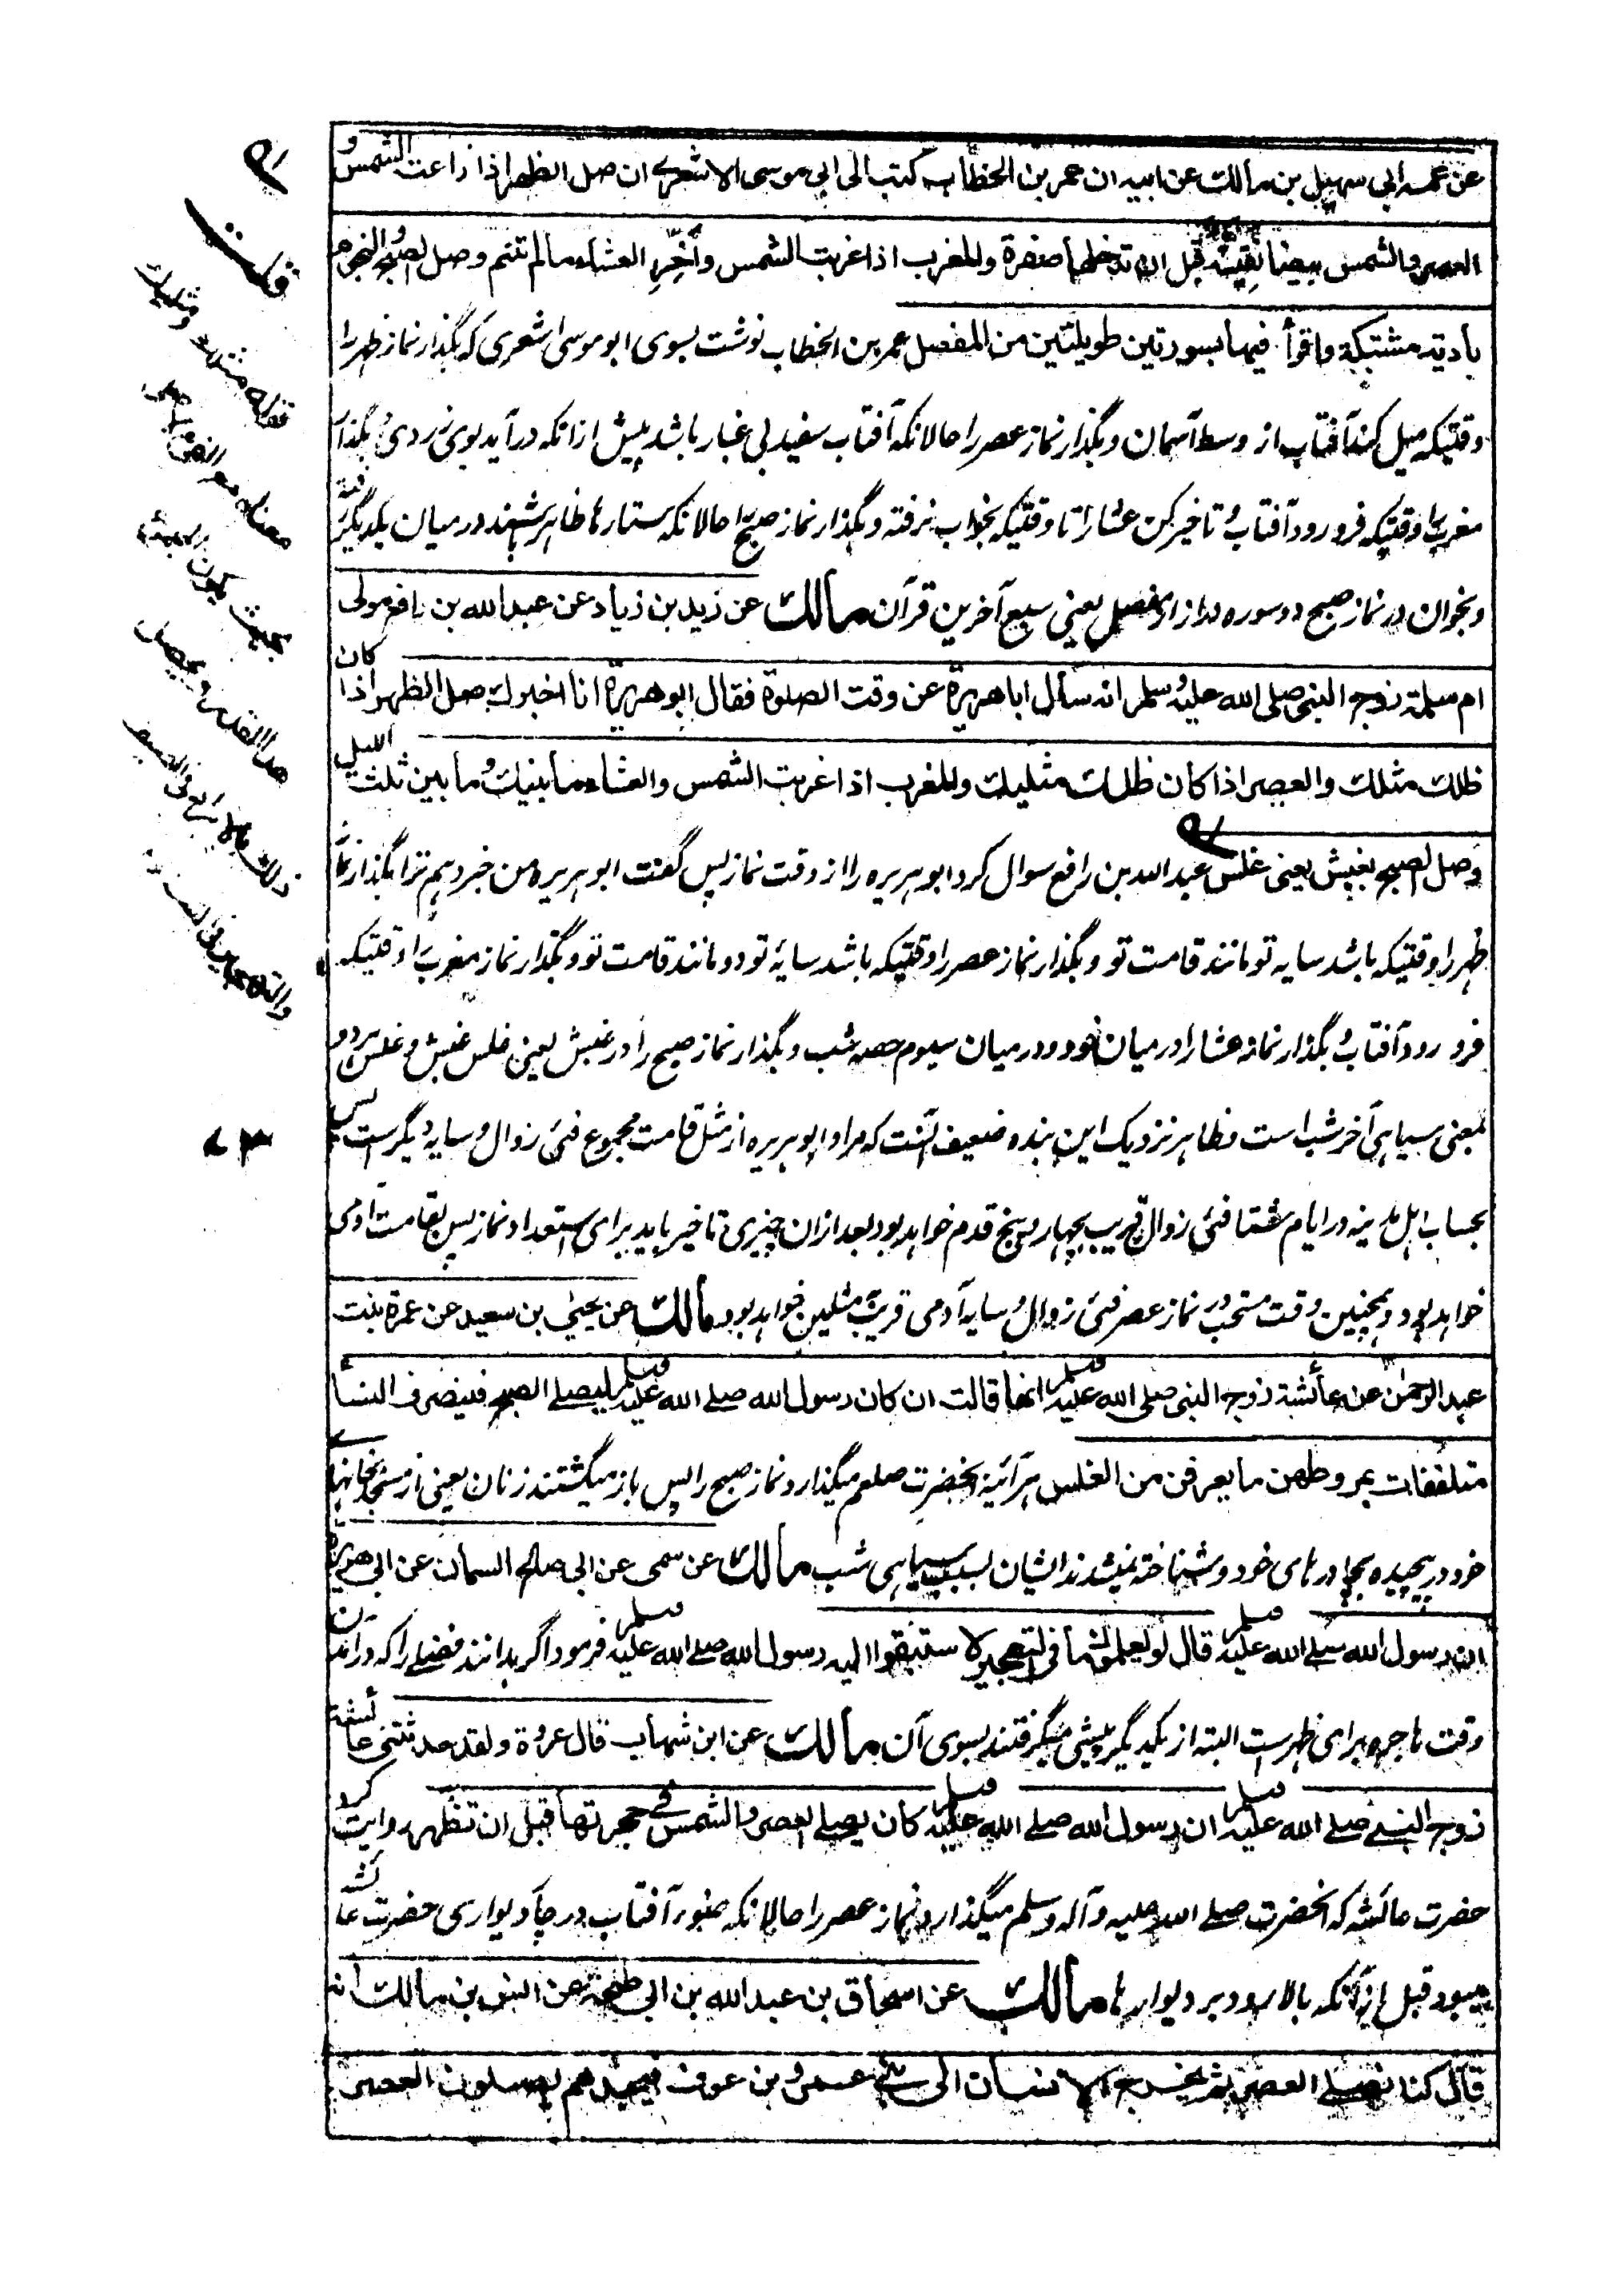 عن عمه ابي سهيل بن مالك عن ابيه ان عمر بن الخطاب كتب الى ابي موسى الاشعري ان صل الظهر اذا زاغت الشمس و
العصر والشمس بيضا نقية قبل ان تدخلها صفرة والمغرب اذا غربت الشمس وأخّرِ العشاء ما لم تنم وصل الصبح والنجوم
بادية مشتبكة واقرأ فيها بسورتين طويلتين من المفصل عمر بن الخطاب نوشت بسوی ابو موسی اشعری که بگذار نماز ظهر را
وقتیکه میل کند آفتاب از وسط آسمان و بگذار نماز عصر را حالانکه آفتاب سفید بی غبار باشد پیش ازانکه در آید بوی زردی و بگذار
مغرب را وقتیکه فرو رود آفتاب و تاخیر کن عشا را تا وقتیکه بخواب نرفته و بگذار نماز صبح را حالانکه ستارها ظاهر باشند در میان یکدیگر
و بخوان در نماز صبح دو سوره دراز از مفصل یعنی سبع آخرین قرآن مالك عن زيد بن زياد عن عبد الله بن رافع مولى
ام سلمة زوج النبي صلى الله عليه وسلم انه سأل ابا هريرة عن وقت الصلوة فقال ابو هريرة انا اخبرك صل الظهر اذا كان
ظلك مثلك والعصر اذا كان ظلك مثليك والمغرب اذا غربت الشمس والعشاء ما بينك وما بين ثلث الليل
وصل الصبح بغبش يعنى غلس عبد الله بن رافع سوال کرد ابو هریره را از وقت نماز پس گفت ابو هریره من خبر دهم ترا بگذار نماز
ظهر را وقتیکه باشد سایه تو مانند قامت تو و بگذار نماز عصر را وقتیکه باشد سایهٔ تو دو مانند قامت تو و بگذار نماز مغرب را وقتیکه
فرو رود آفتاب و بگذار نماز عشا را در میان خود و در میان سیوم حصه شب و بگذار نماز صبح را در غبش یعنی غلس غبش و غلس هر دو
بمعنی سیاهی آخر شب است و ظاهر نزدیک این بنده ضعیف آنست که مراد ابو هریره از مثل قامت مجموع فئ زوال و سایه دیگرست پس
بحساب اهل مدینه در ایام شتا فئ زوال قریب بچهار و پنج قدم خواهد بود بعد ازان چیزی تاخیر باید برای استعداد نماز پس بقامت آدمی
خواهد بود و همچنین وقت مستحب در نماز عصر فئ زوال و سایه آدمی قریب مثلین خواهد بود مالك عن يحيى بن سعيد عن عمرة بنت
عبد الرحمن عن عائشة زوج النبي صلى الله عليه وسلم انها قالت ان كان رسول الله صلى الله عليه وسلم ليصلي الصبح فينصرف النسأ
متلففات بمروطهن ما يعرفن من الغلس هرآئینه آنحضرت صلعم میگذارد نماز صبح را پس باز میگشتند زنان یعنی از مسجد بخانهای
خود در پیچیده بچادرهای خود و شناخته نمیشدند ایشان بسبب سیاهی شب مالك عن سمى عن ابي صالح السمان عن ابي هريرة
ان رسول الله صلى الله عليه وسلم قال لو يعلمون ما في التهجير لاستبقوا اليه رسول الله صلى الله عليه وسلم فرمود اگر بدانند فضلی را که در آمدن
وقت هاجره برای ظهرست البته از یکدیگر پیشی میگرفتند بسوی آن مالك عن ابن شهاب قال عروة ولقد حدثتني عائشة
زوج النبي صلى الله عليه وسلم ان رسول الله صلى الله عليه وسلم كان يصلي العصر والشمس في حجرتها قبل ان تظهر روایت کرد
حضرت عائشه که آنحضرت صلے الله علیه وآله وسلم میگذارد نماز عصر را حالانکه ضوء آفتاب در چاردیواری حضرت عائشه
میبود قبل ازآنکه بالا رود بر دیوارها مالك عن اسحاق بن عبد الله بن ابي طلحة عن انس بن مالك انه
قال كنا نصلي العصر ثم يخرج الانسان الى بني عمرو بن عوف فيجدهم يصلون العصر
قلت
قوله مثلك ومثليك
معناه مع الفئ
بحيث يكون
هذا القدر ويحصل
والله